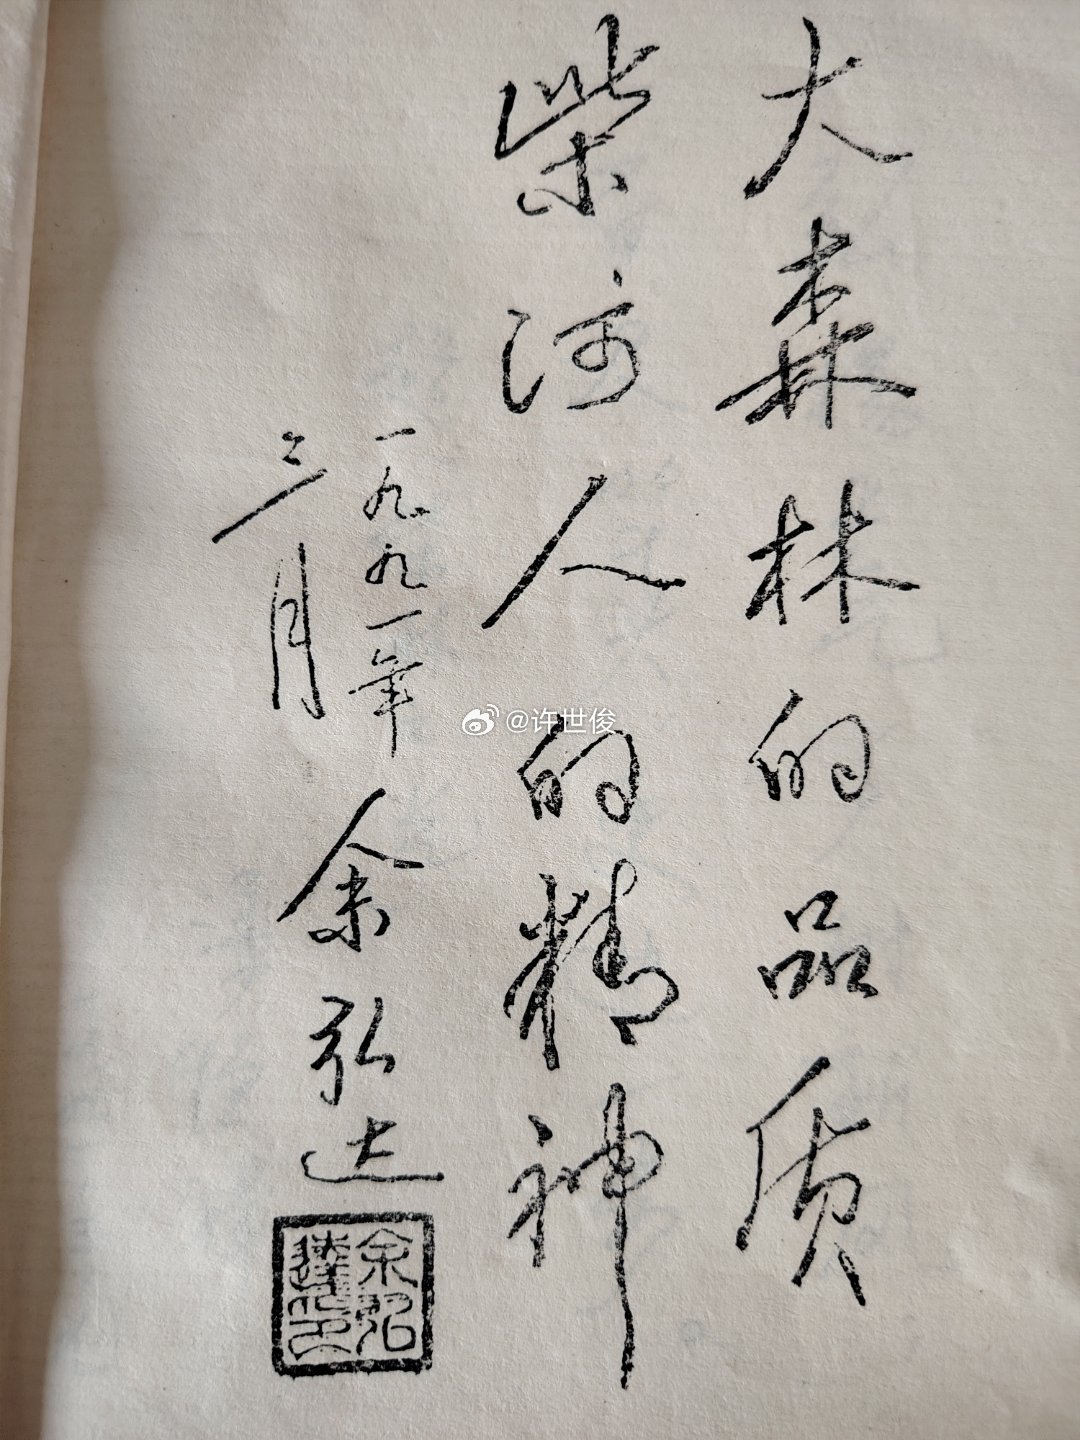 大森林的品质
柴河人的精神
一九九一年
三月
余弘达
余弘达印
@许世俊